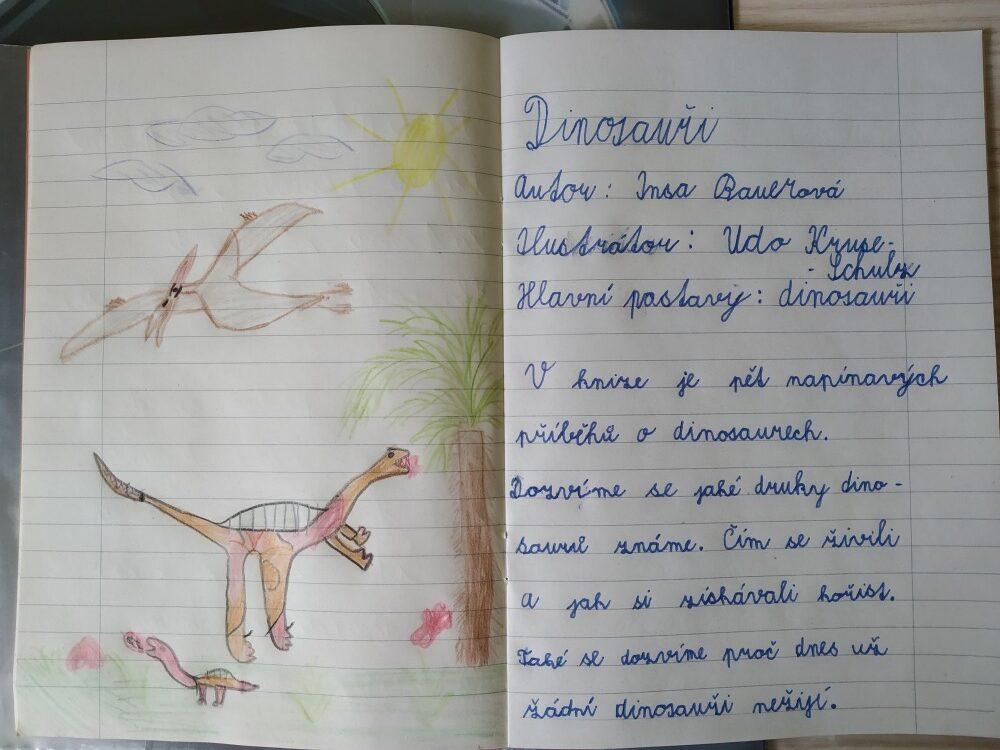 Dinosauři
Autor: Insa Bauerová
Ilustrátor: Udo Kruse-
- Schulz
Hlavní postavy: dinosauři
V knize je pět napínavých
příběhů o dinosaurech.
Dozvíme se jaké druhy dino-
saurů známe. Čím se živili
a jak si získávali kořist.
Také se dozvíme proč dnes už
žádní dinosauři nežijí.